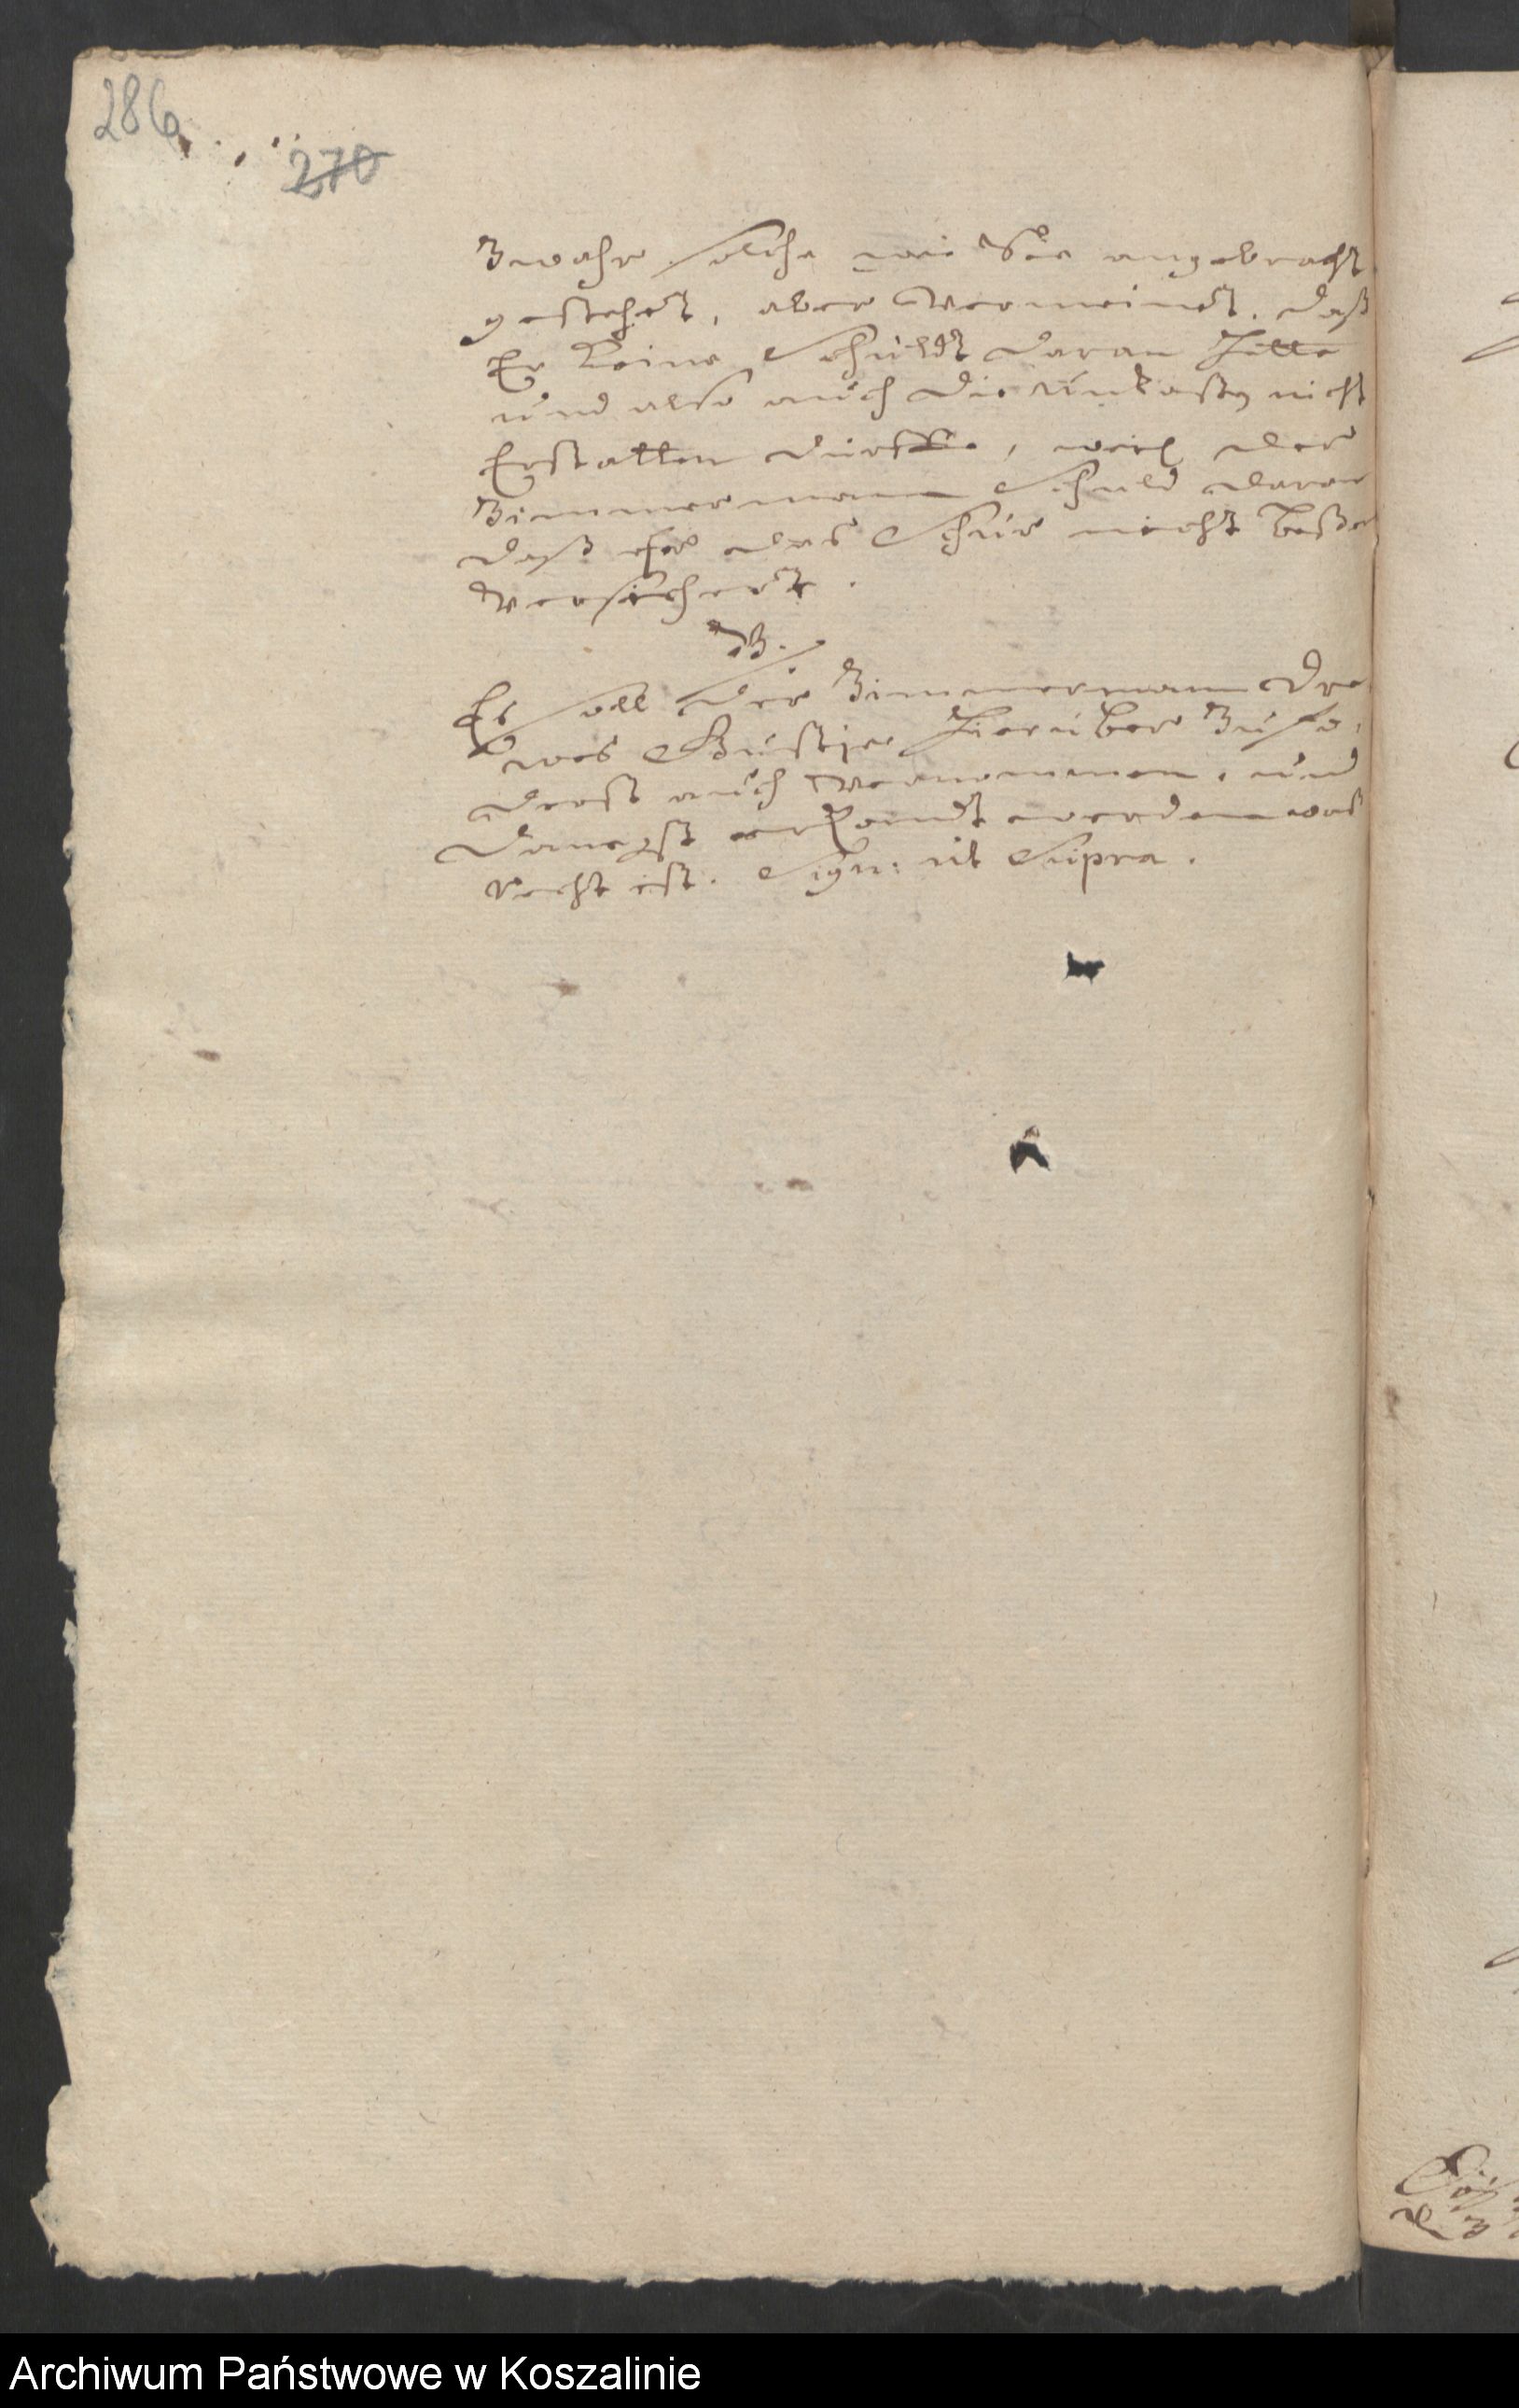 286
270
Zwahr solche wie Sie angebracht
gestehet, aber Vermeindt, daß
Er keine Schuldt daran hette
und also auch die Unkosten nicht
Erstatten dürffte, weil der
Zimmermann Schuld daran
daß Er das Schur nicht beßer
Versichert.
Es soll der Zimmermann Dre
wes hierüber Zufo,
derst auch Vernommen, und
danegst erkandt werden was
recht ist. Sign: ut Supra.
Archiwum Państwowe w Koszalinie